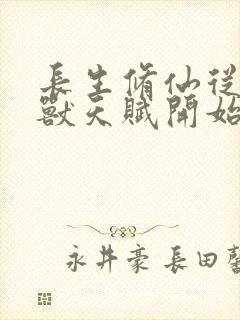 長生脩仙從
獸天賦開始
永井豪 長田馨